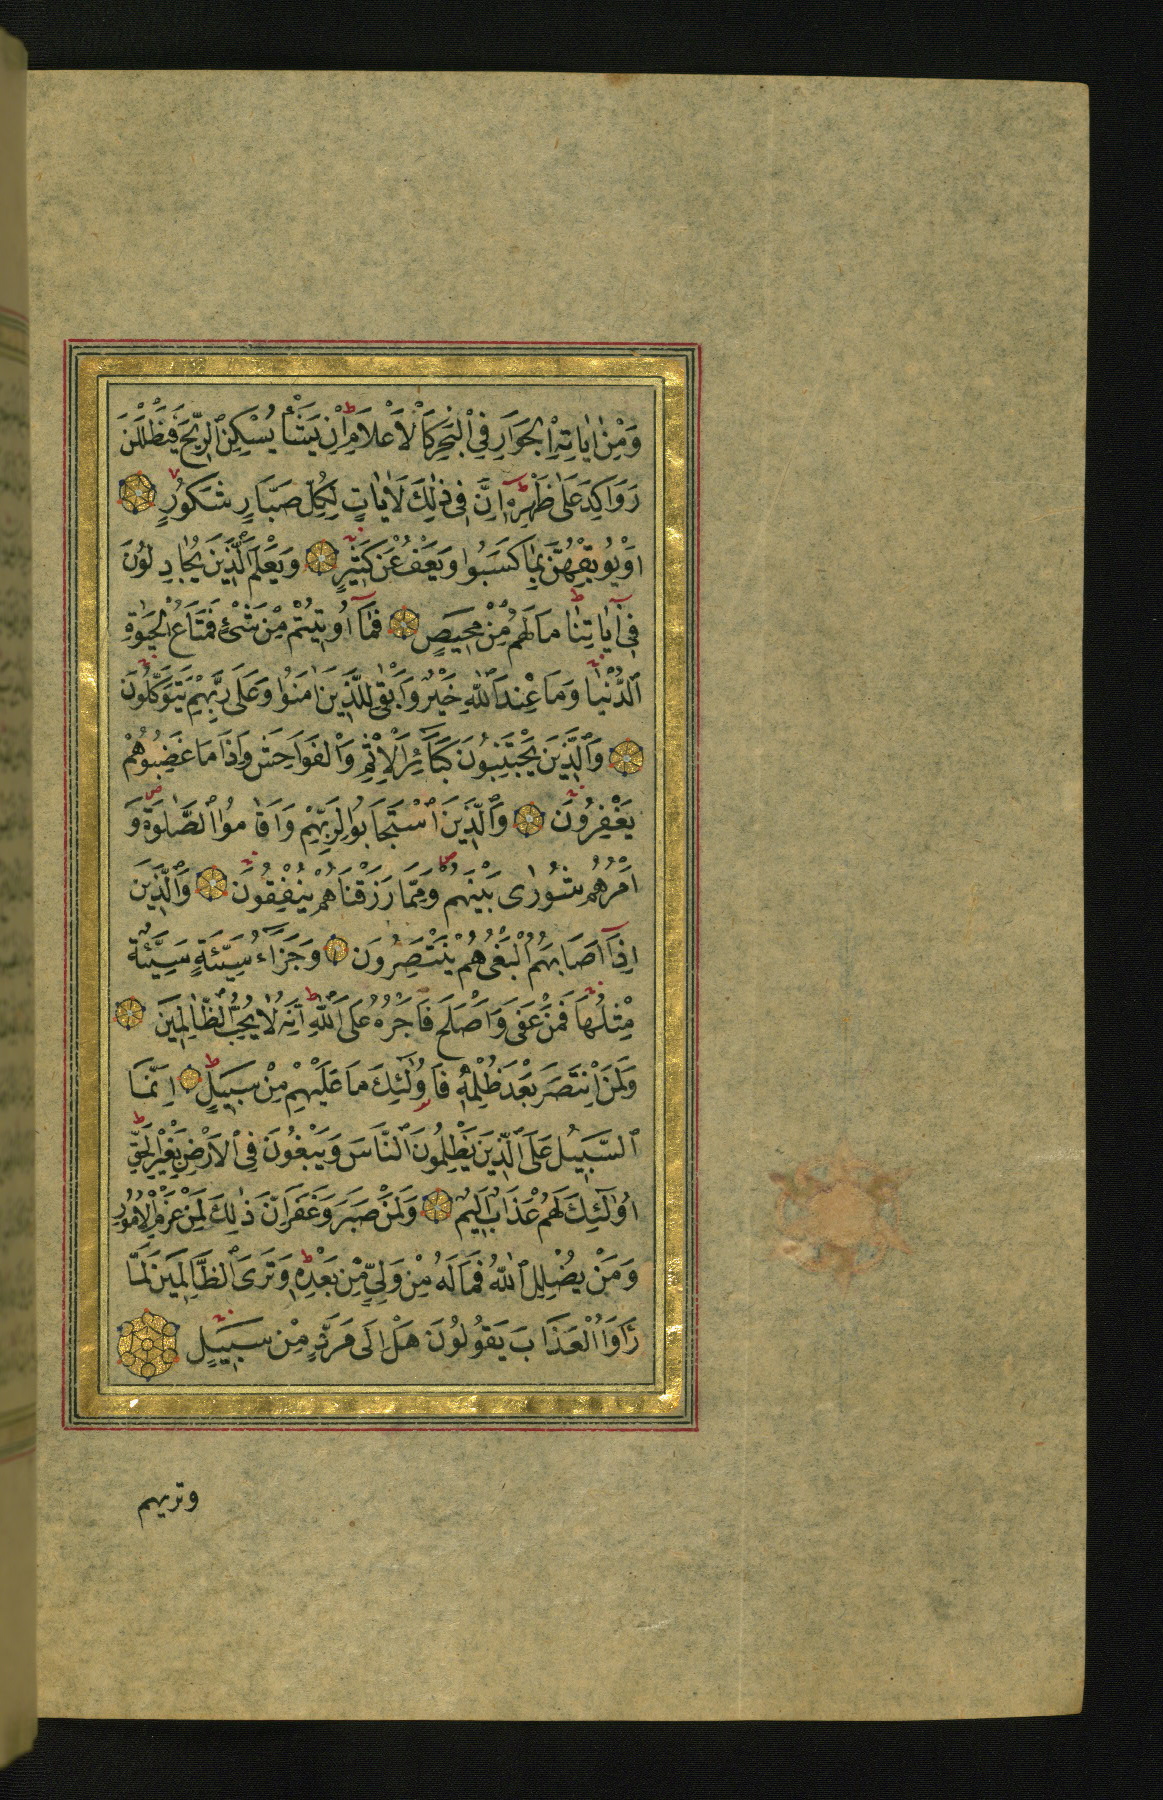 وَمِنْ اٰيَاتِهِ الْجَوَارِ فِي الْبَحْرِ كَالْاَعْلَامِ اِنْ يَشَأْ يُسْكِنِ الرِّيحَ فَيَظْلَلْنَ
رَوَاكِدَ عَلٰى ظَهْرِهِ اِنَّ فِي ذٰلِكَ لَاٰيَاتٍ لِكُلِّ صَبَّارٍ شَكُورٍ
اَوْ يُوبِقْهُنَّ بِمَا كَسَبُوا وَيَعْفُ عَنْ كَثِيرٍ وَيَعْلَمَ الَّذِينَ يُجَادِلُونَ
فِي اٰيَاتِنَا مَا لَهُمْ مِنْ مَحِيصٍ فَمَا اُوتِيتُمْ مِنْ شَيْءٍ فَمَتَاعُ الْحَيٰوةِ
الدُّنْيَا وَمَا عِنْدَ اللّٰهِ خَيْرٌ وَاَبْقٰى لِلَّذِينَ اٰمَنُوا وَعَلٰى رَبِّهِمْ يَتَوَكَّلُونَ
وَالَّذِينَ يَجْتَنِبُونَ كَبَائِرَ الْاِثْمِ وَالْفَوَاحِشَ وَاِذَا مَا غَضِبُوا هُمْ
يَغْفِرُونَ وَالَّذِينَ اسْتَجَابُوا لِرَبِّهِمْ وَاَقَامُوا الصَّلٰوةَ وَ
اَمْرُهُمْ شُورٰى بَيْنَهُمْ وَمِمَّا رَزَقْنَاهُمْ يُنْفِقُونَ وَالَّذِينَ
اِذَا اَصَابَهُمُ الْبَغْيُ هُمْ يَنْتَصِرُونَ وَجَزَاءُ سَيِّئَةٍ سَيِّئَةٌ
مِثْلُهَا فَمَنْ عَفٰى وَاَصْلَحَ فَاَجْرُهُ عَلَى اللّٰهِ اِنَّهُ لَا يُحِبُّ الظَّالِمِينَ
وَلَمَنِ انْتَصَرَ بَعْدَ ظُلْمِهِ فَاُولٰئِكَ مَا عَلَيْهِمْ مِنْ سَبِيلٍ اِنَّمَا
السَّبِيلُ عَلَى الَّذِينَ يَظْلِمُونَ النَّاسَ وَيَبْغُونَ فِي الْاَرْضِ بِغَيْرِ الْحَقِّ
اُولٰئِكَ لَهُمْ عَذَابٌ اَلِيمٌ وَلَمَنْ صَبَرَ وَغَفَرَ اِنَّ ذٰلِكَ لَمِنْ عَزْمِ الْاُمُورِ
وَمَنْ يُضْلِلِ اللّٰهُ فَمَا لَهُ مِنْ وَلِيٍّ مِنْ بَعْدِهِ وَتَرَى الظَّالِمِينَ لَمَّا
رَاَوُا الْعَذَابَ يَقُولُونَ هَلْ اِلٰى مَرَدٍّ مِنْ سَبِيلٍ
وتريهم